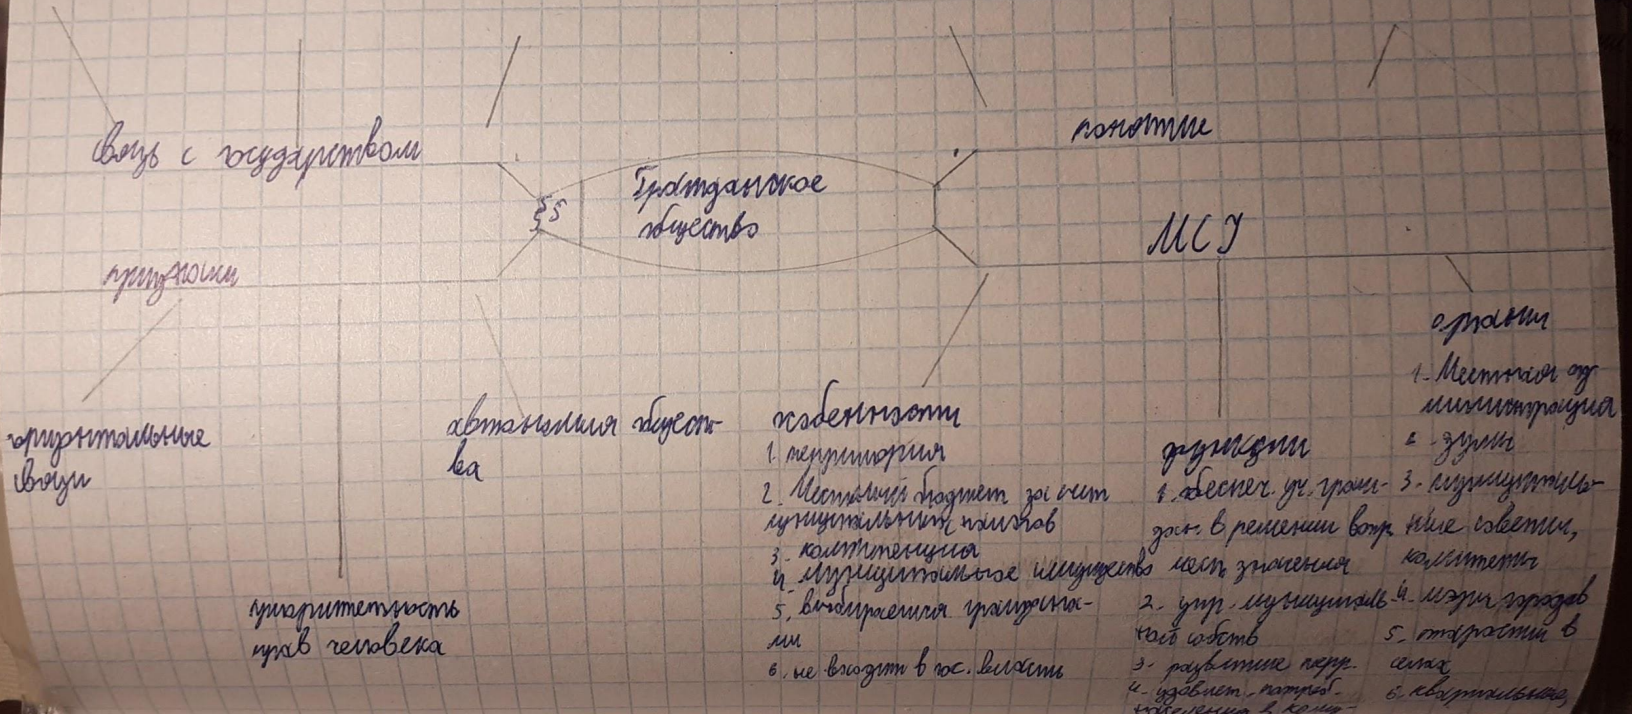 связь с государством
понятие
§5
Гражданское
общество
МСУ
признаки
органы
1. Местная ад-
министрация
2. думы
3. муниципаль-
ные советы,
комитеты
4. мэры городов
5. старосты в
селах
6. квартальные,
горизонтальные
связи
автономия общест-
ва
приоритетность
прав человека
особенности
1. территория
2. Местный бюджет за счет
муниципальных налогов
3. компетенция
4. муниципальное имущество
5. выбирается граждана-
ми
6. не входит в гос. власть
функции
1. обеспеч. уч. граж-
дан. в решении вопр.
мест. значения
2. упр. муниципаль-
ной собств
3. развитие терр.
4. удовлет. потреб.
населения в ком-